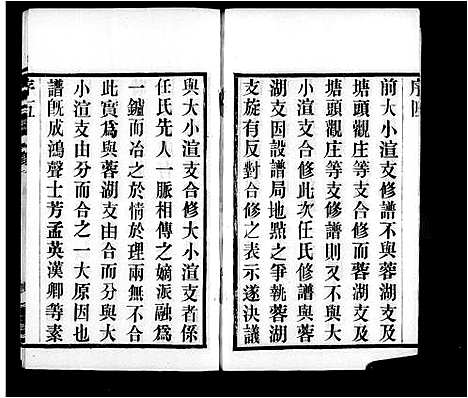 序四
前大小渲支修譜不與蓉湖支及
塘頭觀庄等支合修而蓉湖支及
塘頭觀庄等支修譜則又不與大
小渲支合修此次任氏修譜與蓉
湖支因設譜局地點之爭執蓉湖
支旋有反對合修之表示遂決議
與大小渲支合修大小渲支者係
任氏先人一脈相傳之嫡派融爲
一鑪而冶之於情於理兩無不合
此實爲與蓉湖支由合而分與大
小渲支由分而合之一大原因也
譜旣成鴻聲士芳孟英漢卿等素
序五